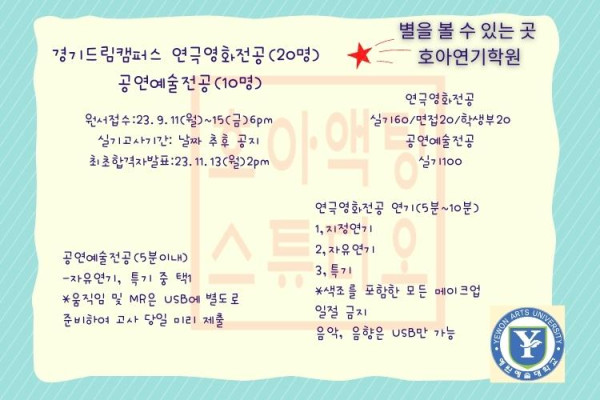 별을 볼 수 있는 곳
호아연기학원
경기드림캠퍼스 연극영화전공(20명)
공연예술전공(10명)
원서접수:23.9.11(월)~15(금)6pm
실기고사기간: 날짜 추후 공지
최초합격자발표:23.11.13(월)2pm
연극영화전공
실기60/면접20/학생부20
공연예술전공
실기100
호아액팅
스튜디오
연극영화전공 연기(5분~10분)
1,지정연기
2,자유연기
3,특기
*색조를 포함한 모든 메이크업
일절 금지
음악, 음향은 USB만 가능
공연예술전공(5분이내)
-자유연기, 특기 중 택1
*움직임 및 MR은 USB에 별도로
준비하여 고사 당일 미리 제출
YEWON ARTS UNIVERSITY
예원예술대학교